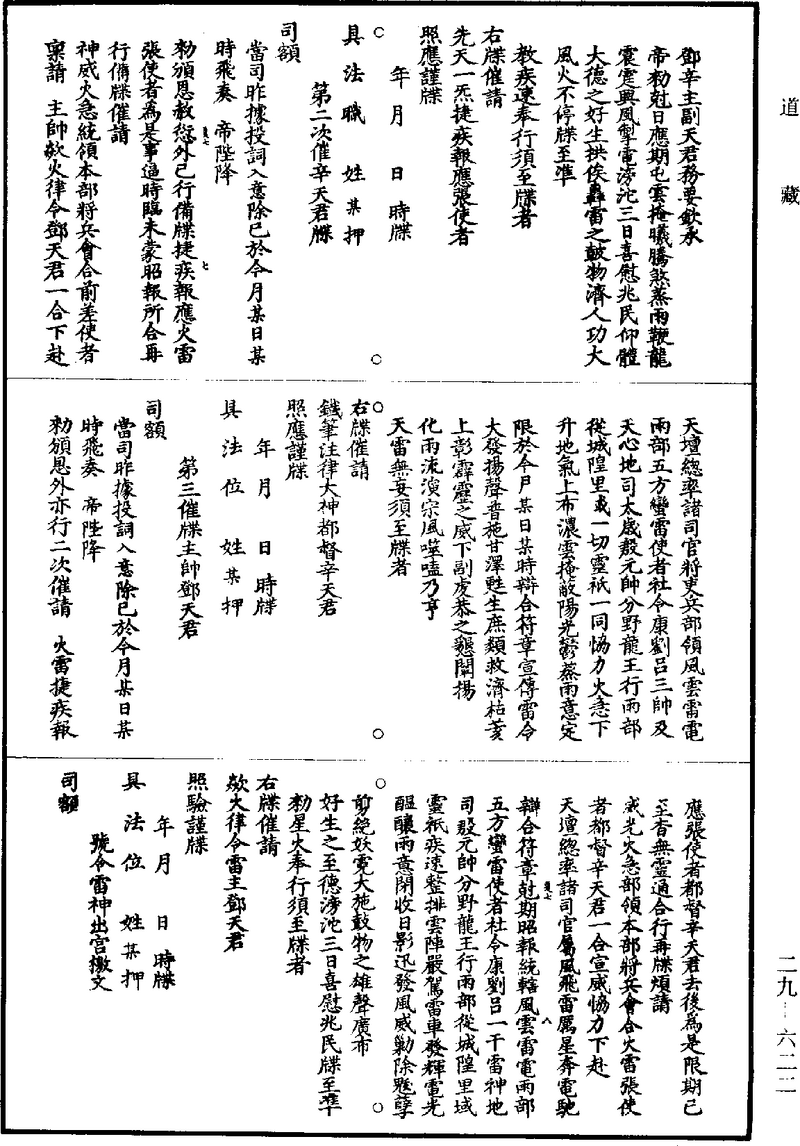 道藏
鄧辛主副天君務要欽承
帝勑尅日應期屯雲掩曦騰煞蒸雨鞭龍
震霆興風掣電滂沱三日喜慰兆民仰體
大德之好生拱俟轟雷之鼓物濟人功大
風火不停牒至準
教疾速奉行須至牒者
右牒催請
先天一炁捷疾報應張使者
照應謹牒
年月 日 時牒
具法職 姓某押
第二次催辛天君牒
司額
當司昨據投詞入意除已於今月某日某
時飛奏 帝陛降
勑頒恩赦愆外已行備牒捷疾報應火雷
張使者為是事逼時臨未蒙昭報所合再
行備牒催請
神威火急統領本部將兵會合前差使者
稟請 主帥歘火律令鄧天君一合下赴
天壇總率諸司官將吏兵部領風雲雷電
雨部五方蠻雷使者社令康劉呂三帥及
天心地司太歲殷元帥分野龍王行雨部
從城隍里域一切靈祇一同恊力火急下
升地氣上布濃雲掩蔽陽光鬱蒸雨意定
限於今月某日某時辯合符章宣傳雷令
大發揚聲普施甘澤甦生庶類救濟枯荄
上彰霹靂之威下副虔恭之懇闡揚
化雨流演宗風噬嗑乃亨
天雷無妄須至牒者
右牒催請
鐵筆注律大神都督辛天君
照應謹牒
年月 日 時牒
具法位 姓某押
第三催牒主帥鄧天君
司額
當司昨據投詞入意除已於今月某日某
時飛奏 帝陛降
勑頒恩外亦行二次催請 火雷捷疾報
應張使者都督辛天君去後為是限期已
至杳無靈通合行再牒煩請
威光火急部領本部將兵會合火雷張使
者都督辛天君一合宣威恊力下赴
天壇總率諸司官屬風飛雷厲星奔電馳
辯合符章尅期昭報統轄風雲雷電雨部
五方蠻雷使者社令康劉呂一干雷神地
司殷元帥分野龍王行雨部從城隍里域
靈祇疾速整排雲陣嚴駕雷車發輝電光
醞釀雨意閉收日影迅發風威勦除魃孽
剪絕妖氛大施鼓物之雄聲廣布
好生之至德滂沱三日喜慰兆民牒至準
勑星火奉行須至牒者
右牒催請
歘火律令雷主鄧天君
照驗謹牒
年月 日 時牒
具法位 姓某押
號令雷神出宮檄文
司額
二九—六二二